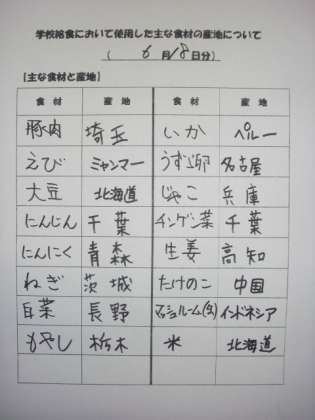 学校給食において使用した主な食材の産地について
( 6 月 18 日分)
【主な食材と産地】
食 材 産 地 食 材 産 地
豚肉 埼玉 いか ペルー
えび ミャンマー うずら卵 名古屋
大豆 北海道 じゃこ 兵庫
にんじん 千葉 インゲン菜 千葉
にんにく 青森 生姜 高知
ねぎ 茨城 たけのこ 中国
白菜 長野 マッシュルーム(缶) インドネシア
もやし 栃木 米 北海道